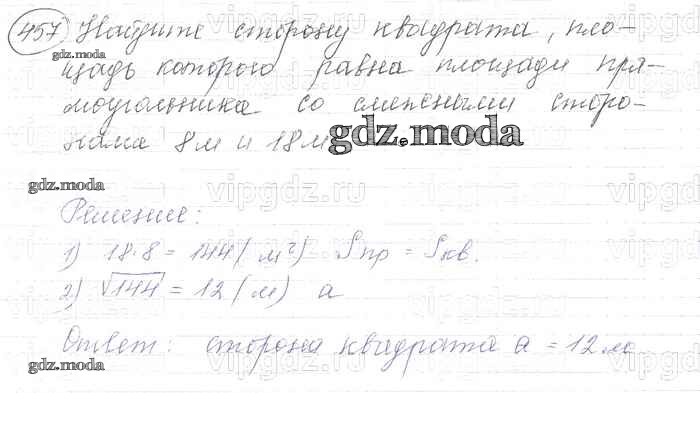 457 Найдите сторону квадрата, пло-
щадь которого равна площади пря-
моугольника со смежными сторо-
нами 8м и 18м
gdz.moda
gdz.moda
gdz.moda
Решение:
1) 18·8 = 144 (м²) Sпр = Sкв.
2) √144 = 12 (м) a
Ответ: сторона квадрата a = 12 м
gdz.moda
vipgdz.ru